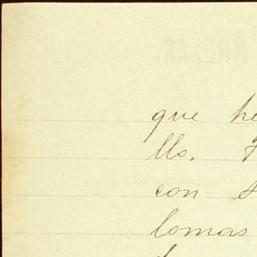 que he
lls.
con
lomas